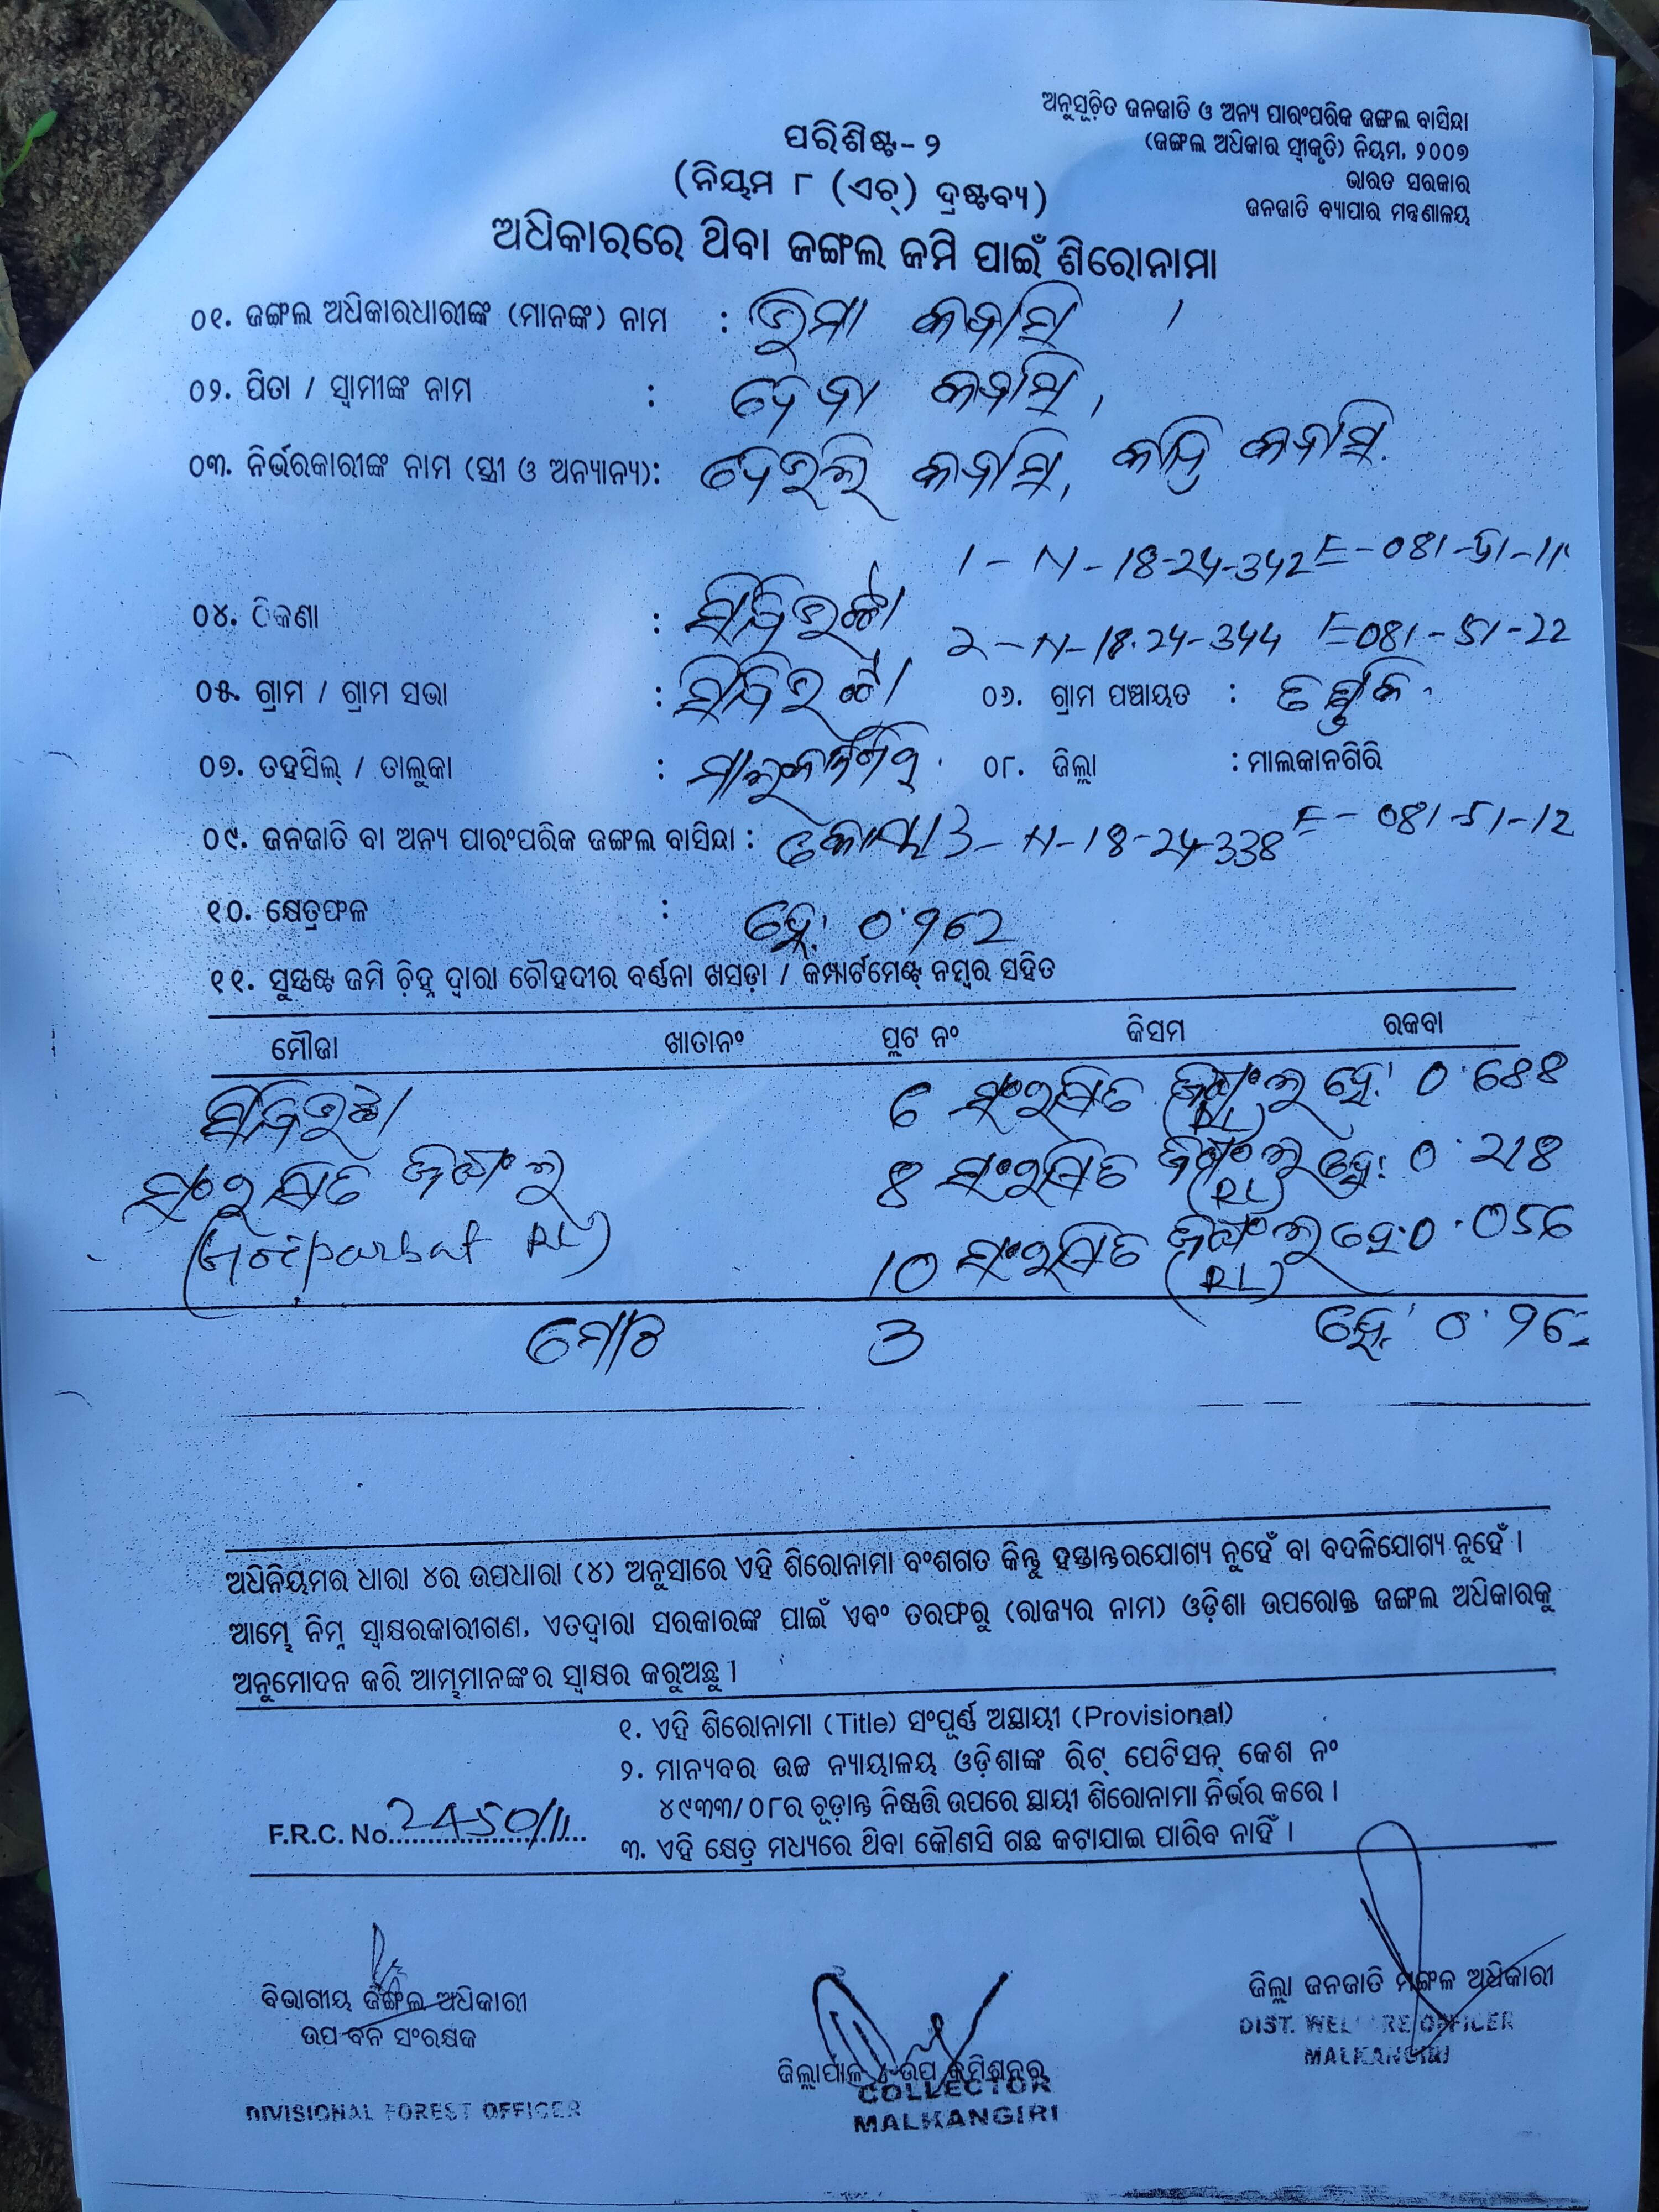 ଅନୁସୂଚିତ ଜନଜାତି ଓ ଅନ୍ୟ ପାରଂପରିକ ଜଙ୍ଗଲ ବାସିନ୍ଦା
(ଜଙ୍ଗଲ ଅଧିକାର ସ୍ୱୀକୃତି) ନିୟମ, ୨୦୦୭
ଭାରତ ସରକାର
ଜନଜାତି ବ୍ୟାପାର ମନ୍ତ୍ରଣାଳୟ
ପରିଶିଷ୍ଟ-୨
(ନିୟମ ୮ (ଏଚ୍) ଦ୍ରଷ୍ଟବ୍ୟ)
ଅଧିକାରରେ ଥିବା ଜଙ୍ଗଲ ଜମି ପାଇଁ ଶିରୋନାମା
୦୧. ଜଙ୍ଗଲ ଅଧିକାରଧାରୀଙ୍କ (ମାନଙ୍କ) ନାମ : କବାସି
୦୨. ପିତା / ସ୍ୱାମୀଙ୍କ ନାମ : ଦେବା କବାସି,
୦୩. ନିର୍ଭରକାରୀଙ୍କ ନାମ (ସ୍ତ୍ରୀ ଓ ଅନ୍ୟାନ୍ୟ): କବାସି, କବାସି.
1 - N - 18-24-342 E - 081-51-11
୦୪. ଠିକଣା :
2 - N - 18.24-344 E=081-51-22
୦୫. ଗ୍ରାମ / ଗ୍ରାମ ସଭା : ୦୬. ଗ୍ରାମ ପଞ୍ଚାୟତ :
୦୭. ତହସିଲ୍ / ତାଲୁକା : ୦୮. ଜିଲ୍ଲା : ମାଲକାନଗିରି
୦୯. ଜନଜାତି ବା ଅନ୍ୟ ପାରଂପରିକ ଜଙ୍ଗଲ ବାସିନ୍ଦା : କୋୟା 3 - N - 18-24-338 E - 081-51-12
୧୦. କ୍ଷେତ୍ରଫଳ : ହେ.
୧୧. ସୁସ୍ପଷ୍ଟ ଜମି ଚିହ୍ନ ଦ୍ୱାରା ଚୌହଦୀର ବର୍ଣ୍ଣନା ଖସଡ଼ା / କମ୍ପାର୍ଟମେଣ୍ଟ ନମ୍ବର ସହିତ
ମୌଜା ଖାତାନଂ ପ୍ଲଟ ନଂ କିସମ ରକବା
ସଂରକ୍ଷିତ ଜଙ୍ଗଲ ହେ.
(RL)
ସଂରକ୍ଷିତ ଜଙ୍ଗଲ
ସଂରକ୍ଷିତ ଜଙ୍ଗଲ ହେ.
(RL)
10 ସଂରକ୍ଷିତ ଜଙ୍ଗଲ ହେ.
(RL)
ମୋଟ 3 ହେ.
ଅଧିନିୟମର ଧାରା ୪ର ଉପଧାରା (୪) ଅନୁସାରେ ଏହି ଶିରୋନାମା ବଂଶଗତ କିନ୍ତୁ ହସ୍ତାନ୍ତରଯୋଗ୍ୟ ନୁହେଁ ବା ବଦଳିଯୋଗ୍ୟ ନୁହେଁ ।
ଆମ୍ଭେ ନିମ୍ନ ସ୍ୱାକ୍ଷରକାରୀଗଣ, ଏତଦ୍ଦ୍ୱାରା ସରକାରଙ୍କ ପାଇଁ ଏବଂ ତରଫରୁ (ରାଜ୍ୟର ନାମ) ଓଡ଼ିଶା ଉପରୋକ୍ତ ଜଙ୍ଗଲ ଅଧିକାରକୁ
ଅନୁମୋଦନ କରି ଆମ୍ଭମାନଙ୍କର ସ୍ୱାକ୍ଷର କରୁଅଛୁ ।
୧. ଏହି ଶିରୋନାମା (Title) ସଂପୂର୍ଣ୍ଣ ଅସ୍ଥାୟୀ (Provisional)
୨. ମାନ୍ୟବର ଉଚ୍ଚ ନ୍ୟାୟାଳୟ ଓଡ଼ିଶାଙ୍କ ରିଟ୍ ପେଟିସନ୍ କେଶ ନଂ
୪୯୩୩/୦୮ର ଚୂଡ଼ାନ୍ତ ନିଷ୍ପତ୍ତି ଉପରେ ସ୍ଥାୟୀ ଶିରୋନାମା ନିର୍ଭର କରେ ।
F.R.C. No. 2450/11
୩. ଏହି କ୍ଷେତ୍ର ମଧ୍ୟରେ ଥିବା କୌଣସି ଗଛ କଟାଯାଇ ପାରିବ ନାହିଁ ।
ବିଭାଗୀୟ ଜଙ୍ଗଲ ଅଧିକାରୀ
ଉପ ବନ ସଂରକ୍ଷକ
DIVISIONAL FOREST OFFICER
ଜିଲ୍ଲାପାଳ ଓ ଉପ କମିଶନର
COLLECTOR
MALKANGIRI
ଜିଲ୍ଲା ଜନଜାତି ମଙ୍ଗଳ ଅଧିକାରୀ
DIST. WELFARE OFFICER
MALKANGIRI